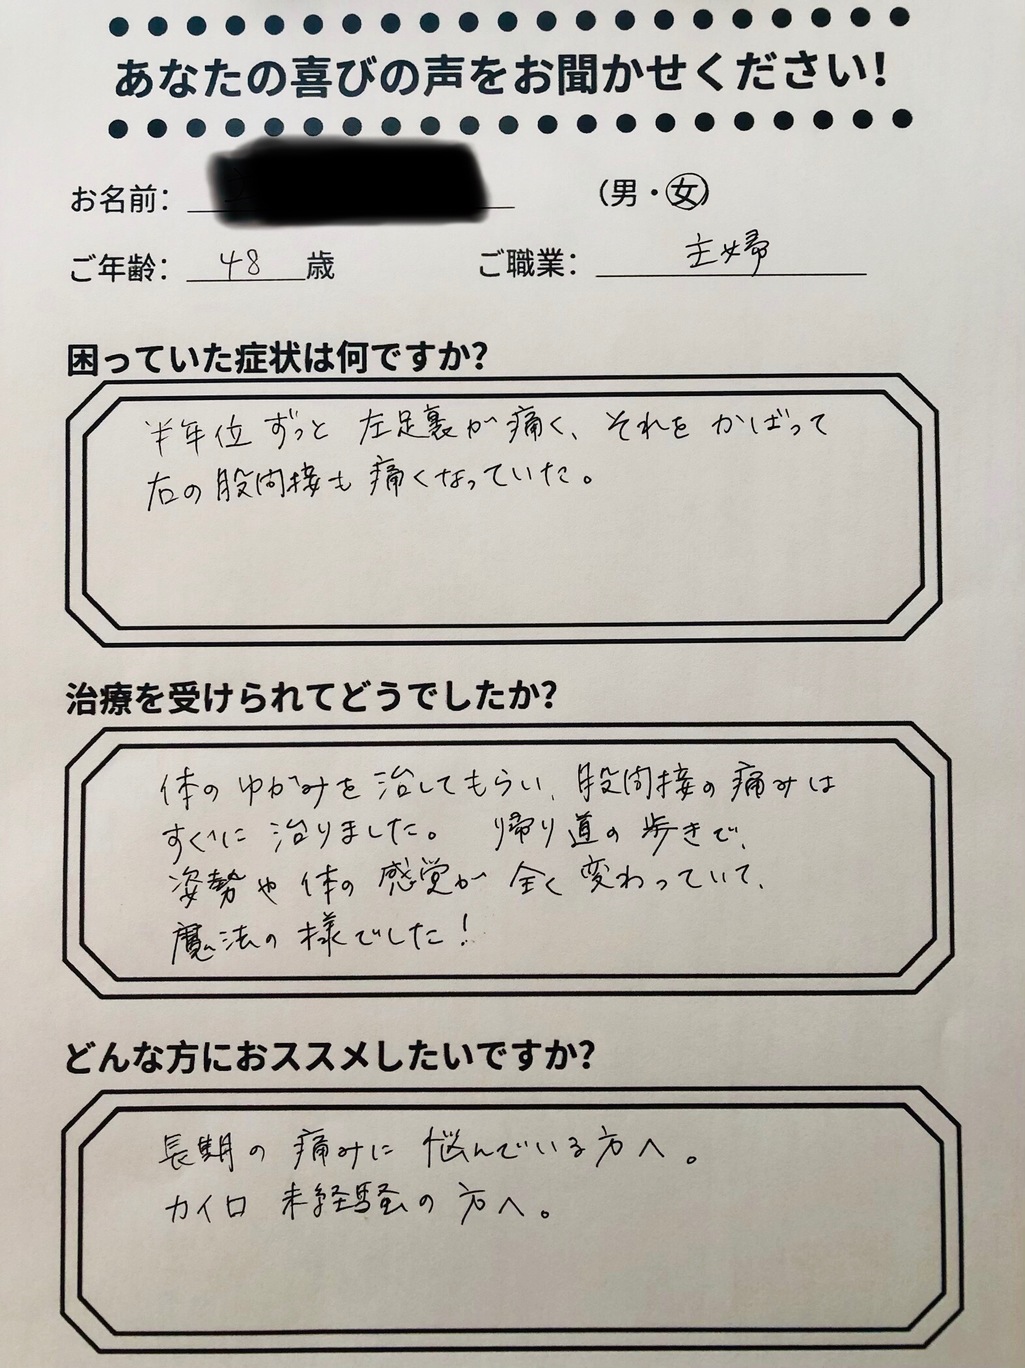 あなたの喜びの声をお聞かせください!
お名前: (男・女)
ご年齢: 48歳 ご職業: 主婦
困っていた症状は何ですか?
半年位ずっと左足裏が痛く、それをかばって
右の股間接も痛くなっていた。
治療を受けられてどうでしたか?
体のゆがみを治してもらい、股間接の痛みは
すぐに治りました。 帰り道の歩きで、
姿勢や体の感覚が全く変わっていて、
魔法の様でした!
どんな方におススメしたいですか?
長期の痛みに悩んでいる方へ。
カイロ未経騒の方へ。